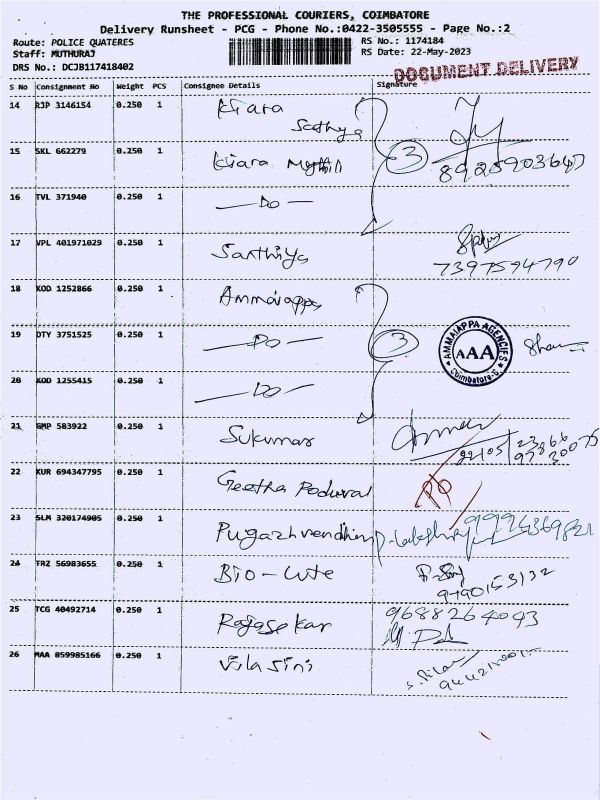 THE PROFESSIONAL COURIERS, COIMBATORE
Delivery Runsheet - PCG - Phone No.:0422-3505555 - Page No.:2
Route: POLICE QUATERES
RS No.: 1174184
Staff: MUTHURAJ
RS Date: 22-May-2023
DRS No.: DCJB117418402
DOCUMENT DELIVERY
S No Consignment No Weight PCS Consignee Details Signature
14 RJP 3146154 0.250 1 Kiara
Sathya
15 SKL 662279 0.250 1 Kiara 3
8925903647
16 TVL 371940 0.250 1 — Do —
17 VPL 401971029 0.250 1 Santhiya
7397594790
18 KOD 1252866 0.250 1 Ammaiappa
19 DTY 3751525 0.250 1 — Do — 3
AMMAIAPPA AGENCIES
AAA
Coimbatore-6
20 KOD 1255415 0.250 1 — Do —
21 GMP 583922 0.250 1 Sukumar
22 KUR 694347795 0.250 1 Geetha Poduval
23 SLM 320174905 0.250 1 Pugazhvendhin
24 TRZ 56983655 0.250 1 Bio-Lite
25 TCG 40492714 0.250 1 Rajasekar 9688264093
26 MAA 859985166 0.250 1 Vilasini